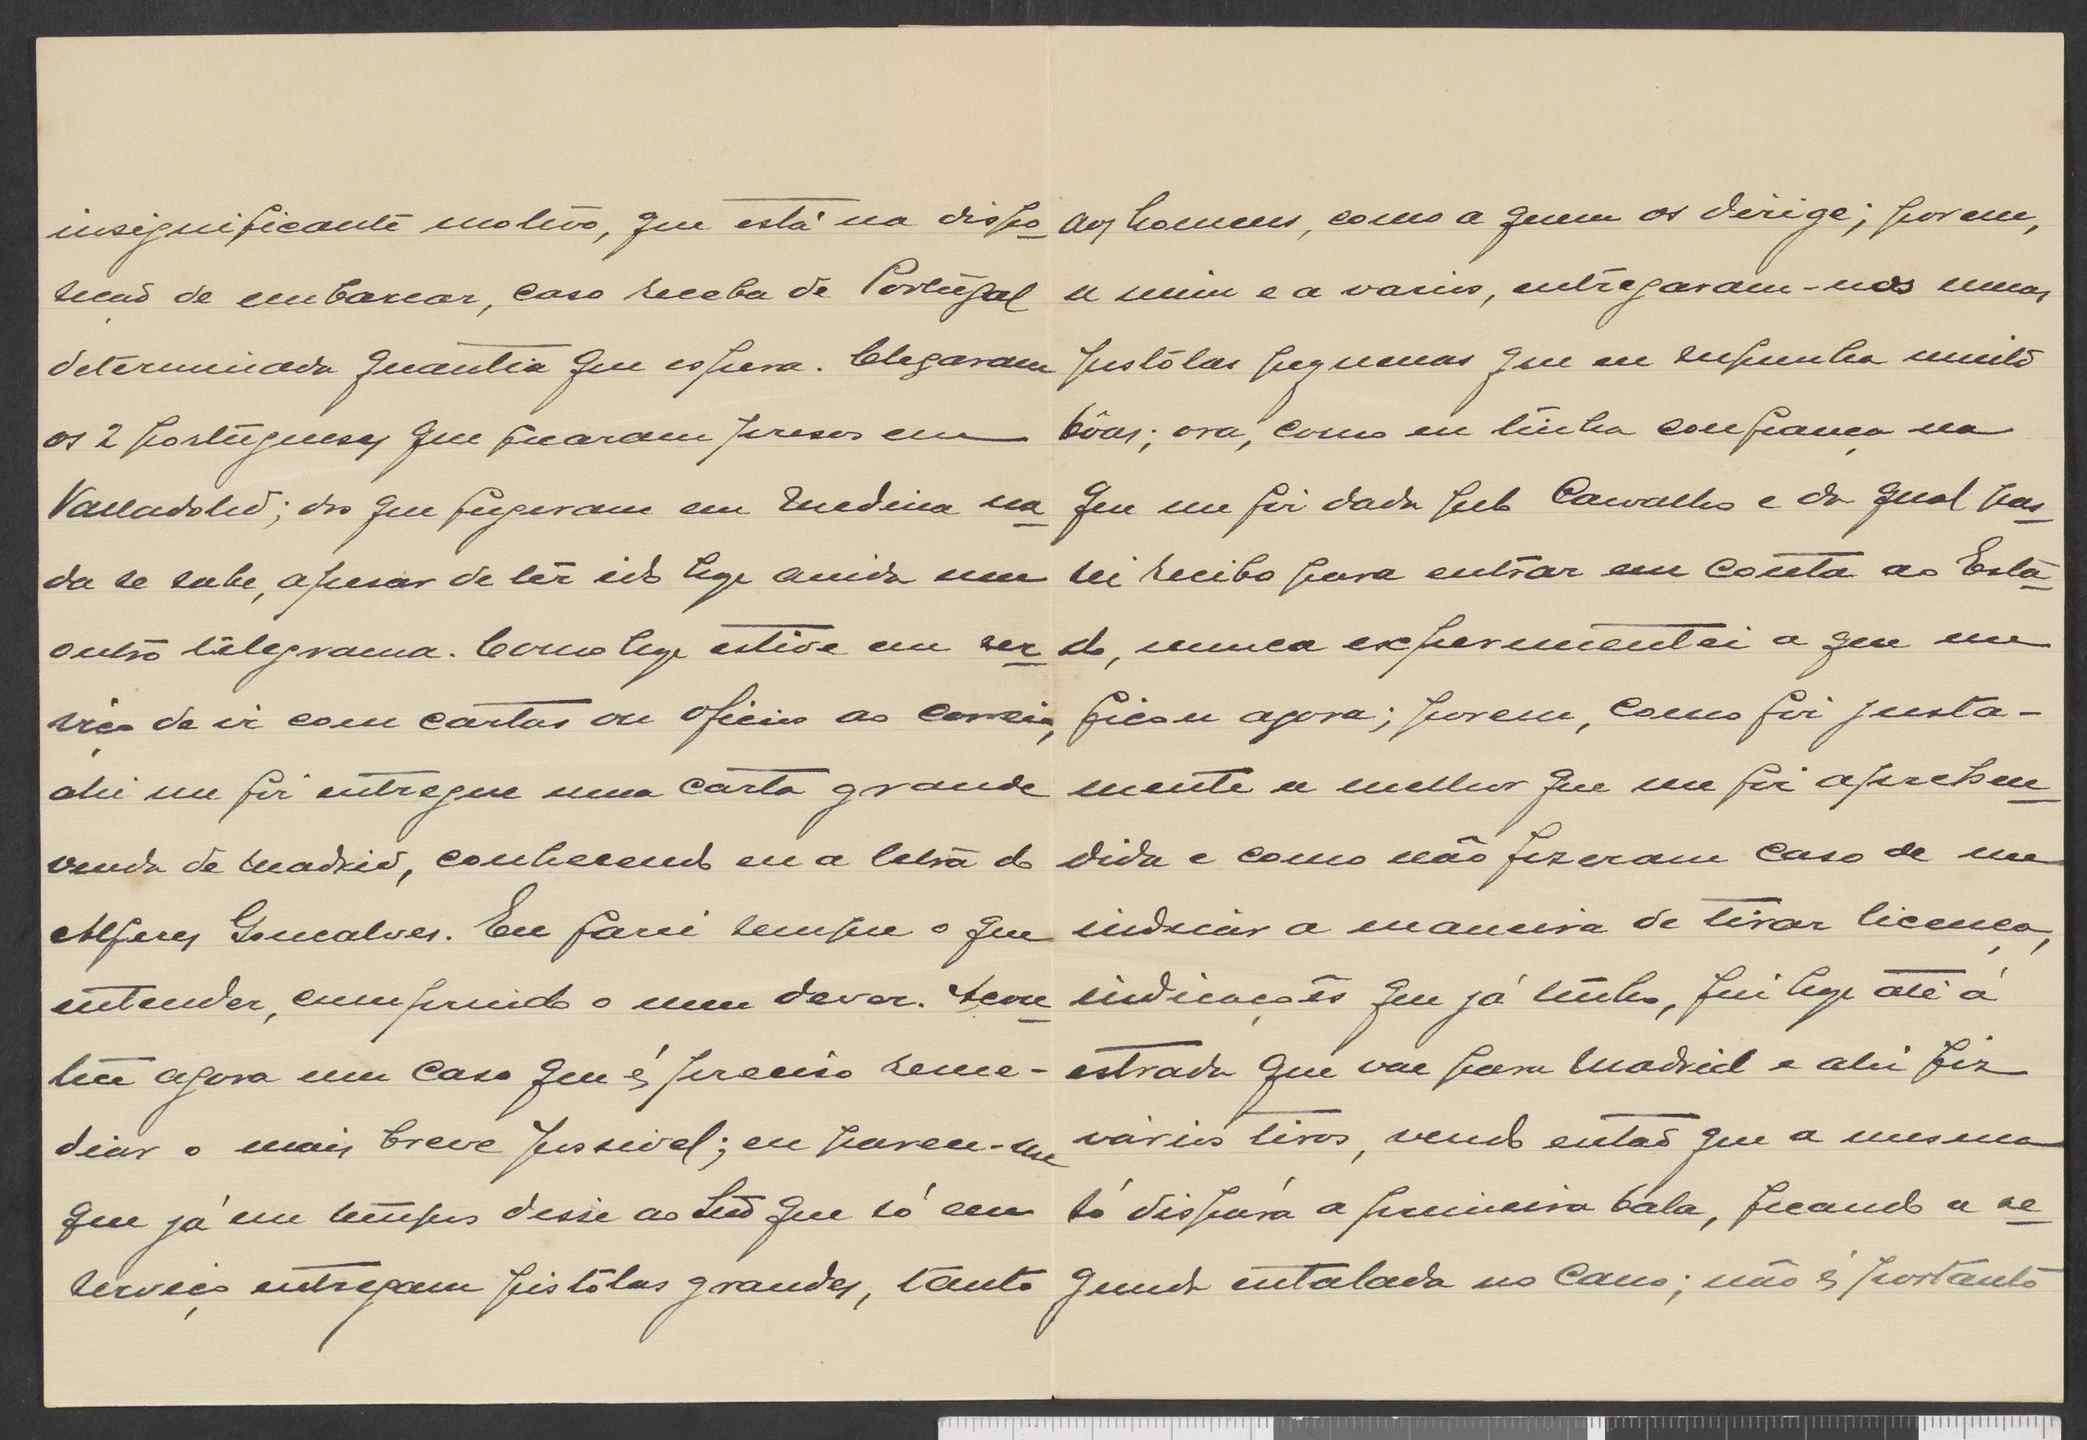 insignificante motivo, que está na dispo
sição de embarcar, caso receba de Portugal
determinada quantia que espera. Chegaram
os 2 portugueses que ficaram presos em
Valladolid; dos que fugiram em Medina na
da se sabe, apesar de têr ido hoje ainda um
outro têlegrama. Como hoje estive em ser
viço de ir com cartas ou oficios ao correio,
ahi me foi entregue uma carta grande
vinda de Madrid, conhecendo eu a letra do
Alferes Gonçalves. Eu farei sempre o que
entender, cumprindo o meu dever. Acon
tece agora um caso que é preciso reme-
diar o mais breve possivel; eu parece-me
que já em tempos disse ao que só em
serviço entregam pistólas grandes, tanto
aos homens, como a quem os dirige; porem,
a mim e a varios, entregaram-nos umas
pistólas pequenas que eu supunha muito
bôas; ora, como eu tinha confiança na
que me foi dada pelo Carvalho e da qual pas
sei recibo para entrar em conta ao Esta
do, nunca experimentei a que me
ficou agora; porem, como foi justa-
mente a melhor que me foi aprehen
dida e como não fizeram caso de me
indicar a maneira de tirar licença,
indicações que já tinha, fui hoje até á
estrada que vae para Madrid e ahi fiz
vários tiros, vendo então que a mesma
só dispára a primeira bala, ficando a se
gunda entalada no cano; não é portanto